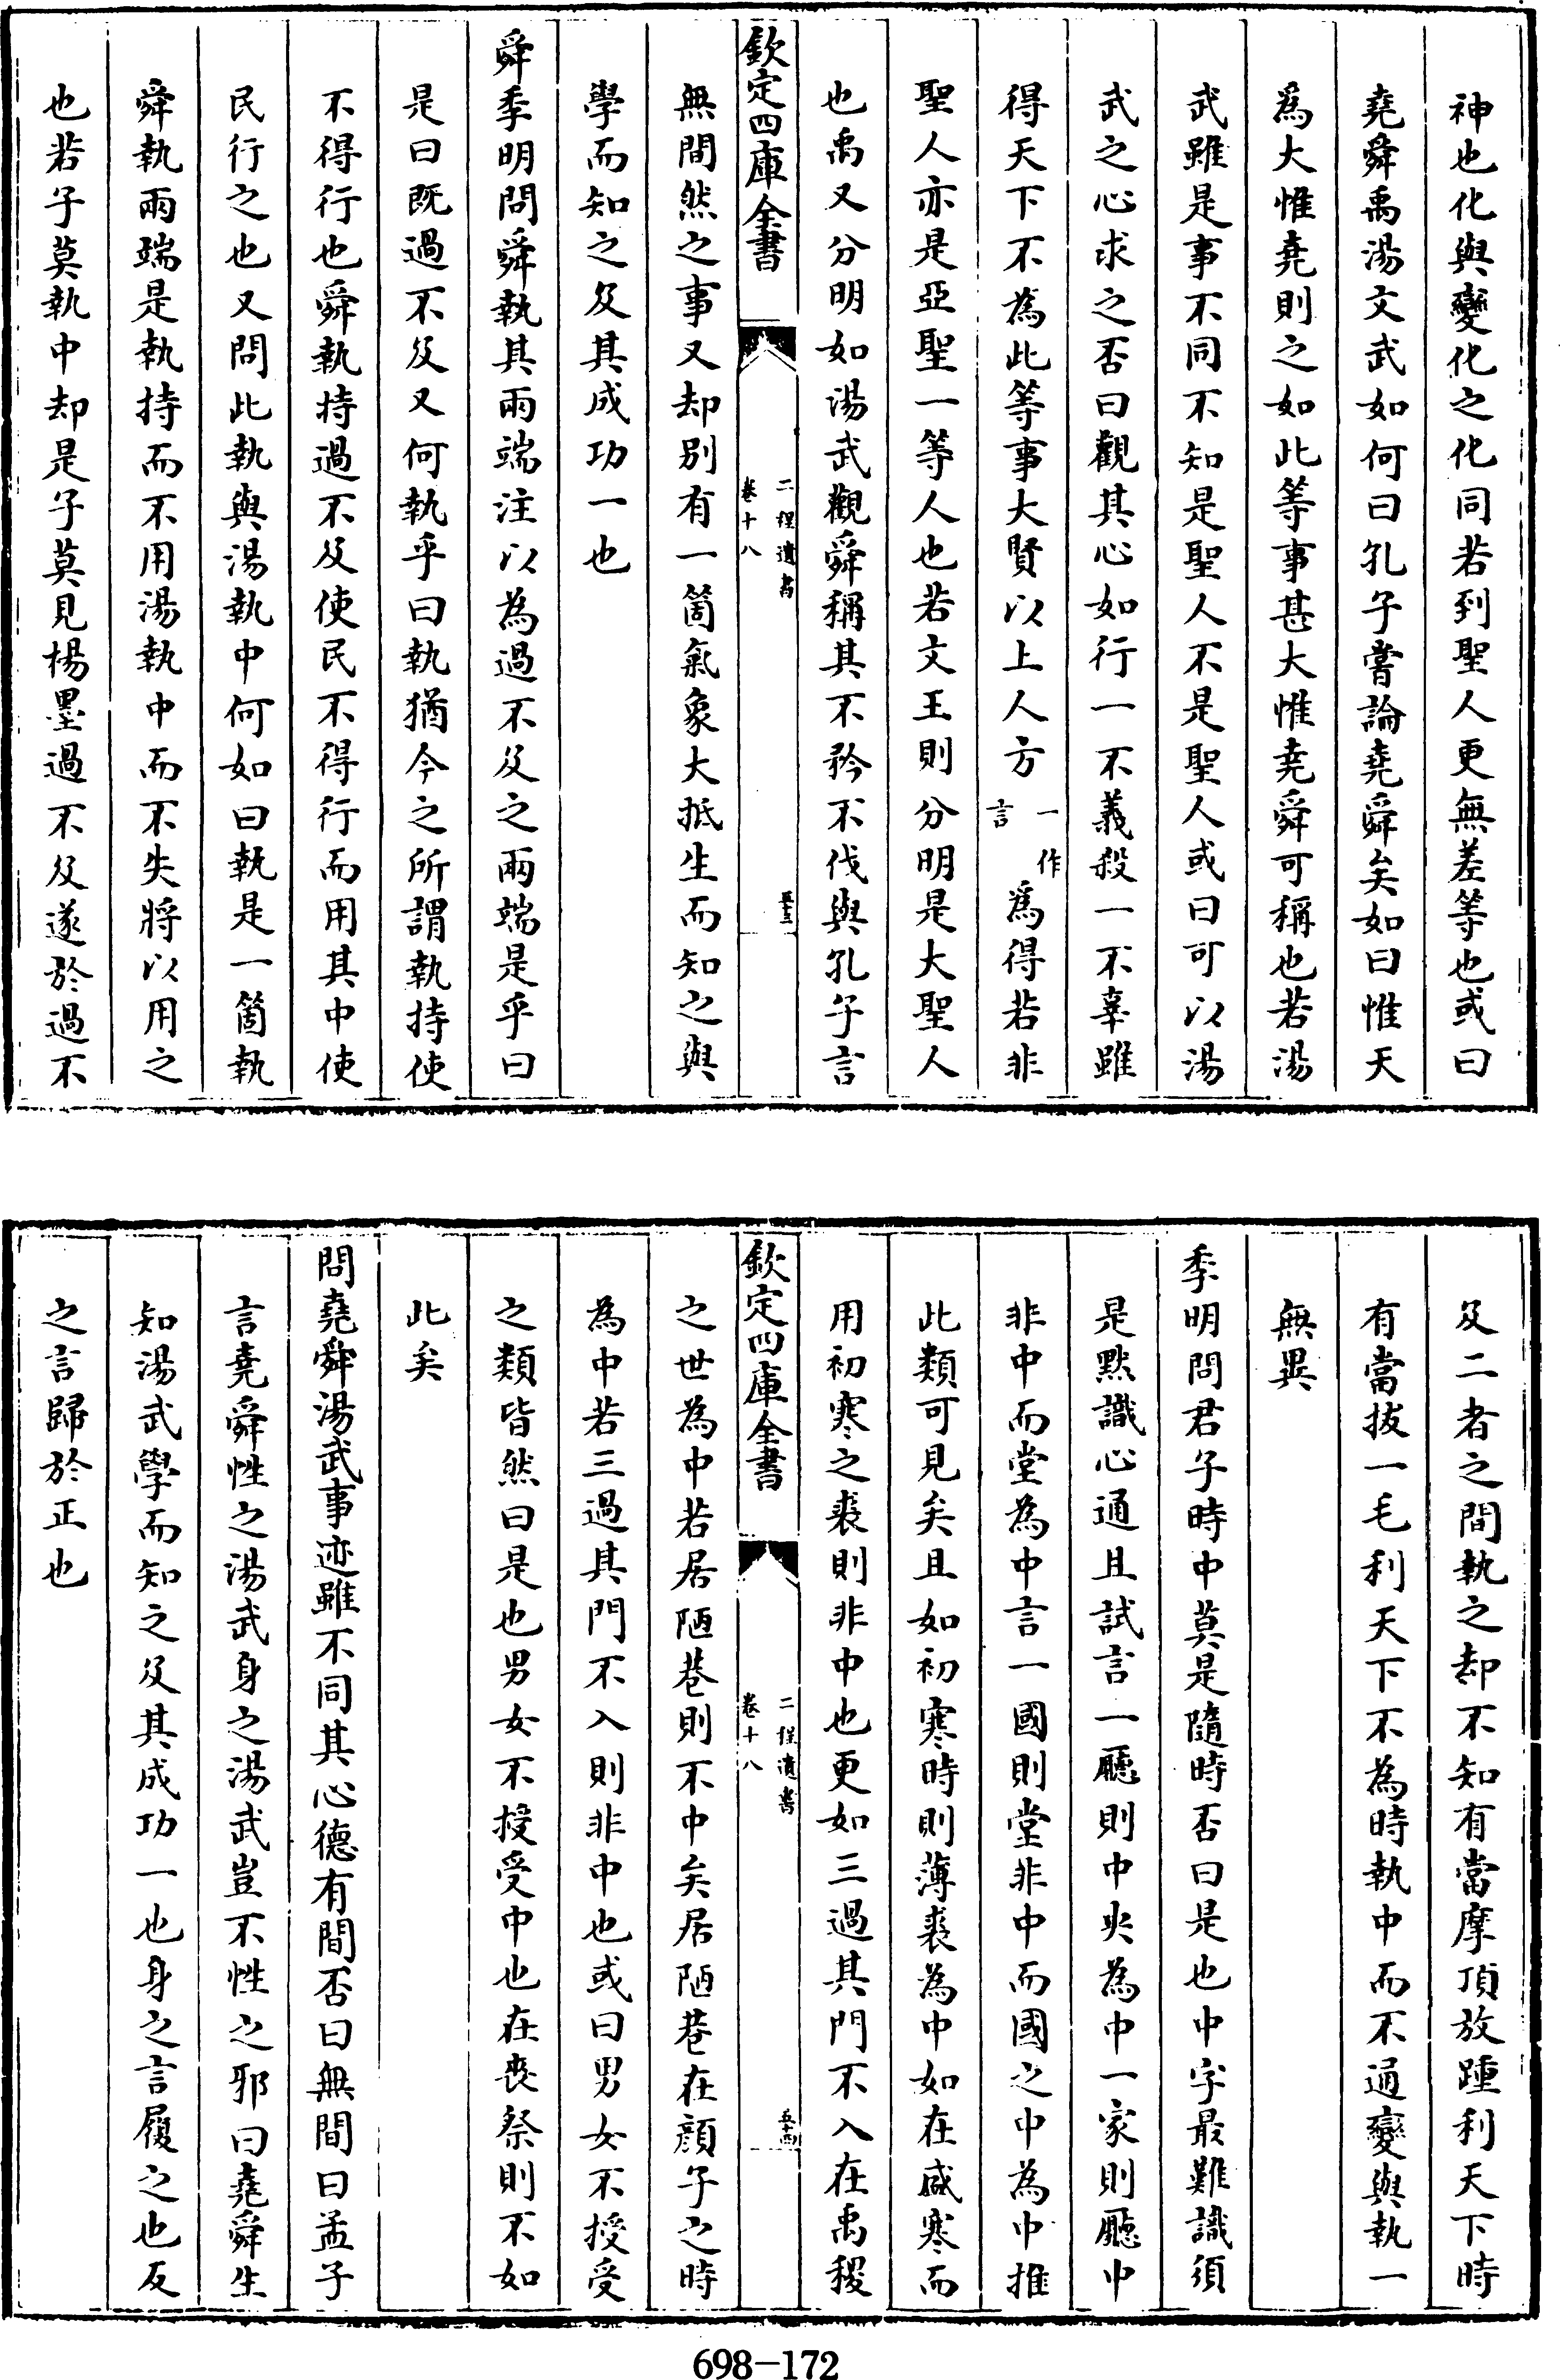 神也化與變化之化同若到聖人更無差等也或曰
堯舜禹湯文武如何曰孔子嘗論堯舜矣如曰惟天
為大惟堯則之如此等事甚大惟堯舜可稱也若湯
武雖是事不同不知是聖人不是聖人或曰可以湯
武之心求之否曰觀其心如行一不義殺一不辜雖
得天下不為此等事大賢以上人方一作言為得若非
聖人亦是亞聖一等人也若文王則分明是大聖人
也禹又分明如湯武觀舜稱其不矜不伐與孔子言
欽定四庫全書
二程遺書
卷十八
五十三
無間然之事又却別有一箇氣象大抵生而知之與
學而知之及其成功一也
舜季明問舜執其兩端注以為過不及之兩端是乎曰
是曰既過不及又何執乎曰執猶今之所謂執持使
不得行也舜執持過不及使民不得行而用其中使
民行之也又問此執與湯執中何如曰執是一箇執
舜執兩端是執持而不用湯執中而不失將以用之
也若子莫執中却是子莫見楊墨過不及遂於過不
及二者之間執之却不知有當摩頂放踵利天下時
有當拔一毛利天下不為時執中而不通變與執一
無異
季明問君子時中莫是隨時否曰是也中字最難識須
是默識心通且試言一廳則中央為中一家則廳中
非中而堂為中言一國則堂非中而國之中為中推
此類可見矣且如初寒時則薄裘為中如在盛寒而
用初寒之裘則非中也更如三過其門不入在禹稷
欽定四庫全書
二程遺書
卷十八
五十四
之世為中若居陋巷則不中矣居陋巷在顔子之時
為中若三過其門不入則非中也或曰男女不授受
之類皆然曰是也男女不授受中也在喪祭則不如
此矣
問堯舜湯武事迹雖不同其心德有間否曰無間曰孟子
言堯舜性之湯武身之湯武豈不性之邪曰堯舜生
知湯武學而知之及其成功一也身之言履之也反
之言歸於正也
698-172